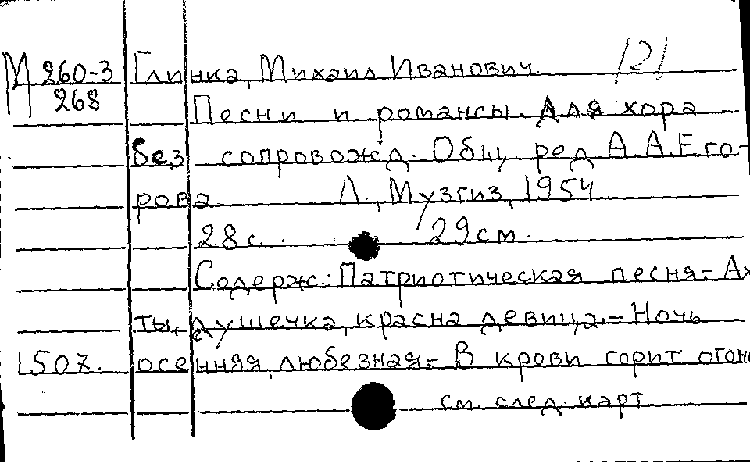 М 260-3 Глинка, Михаил Иванович. |2|
268 Песни и романсы. Для хора
без сопровожд. Общ. ред. А.А.Его-
рова Л., Музгиз, 1954
28 с. 29 см.
Содерж.: Патриотическая песня.- Ах
ты, душечка, красна девица.- Ночь
1507. осенняя, любезная.- В крови горит огонь
см. след. карт.